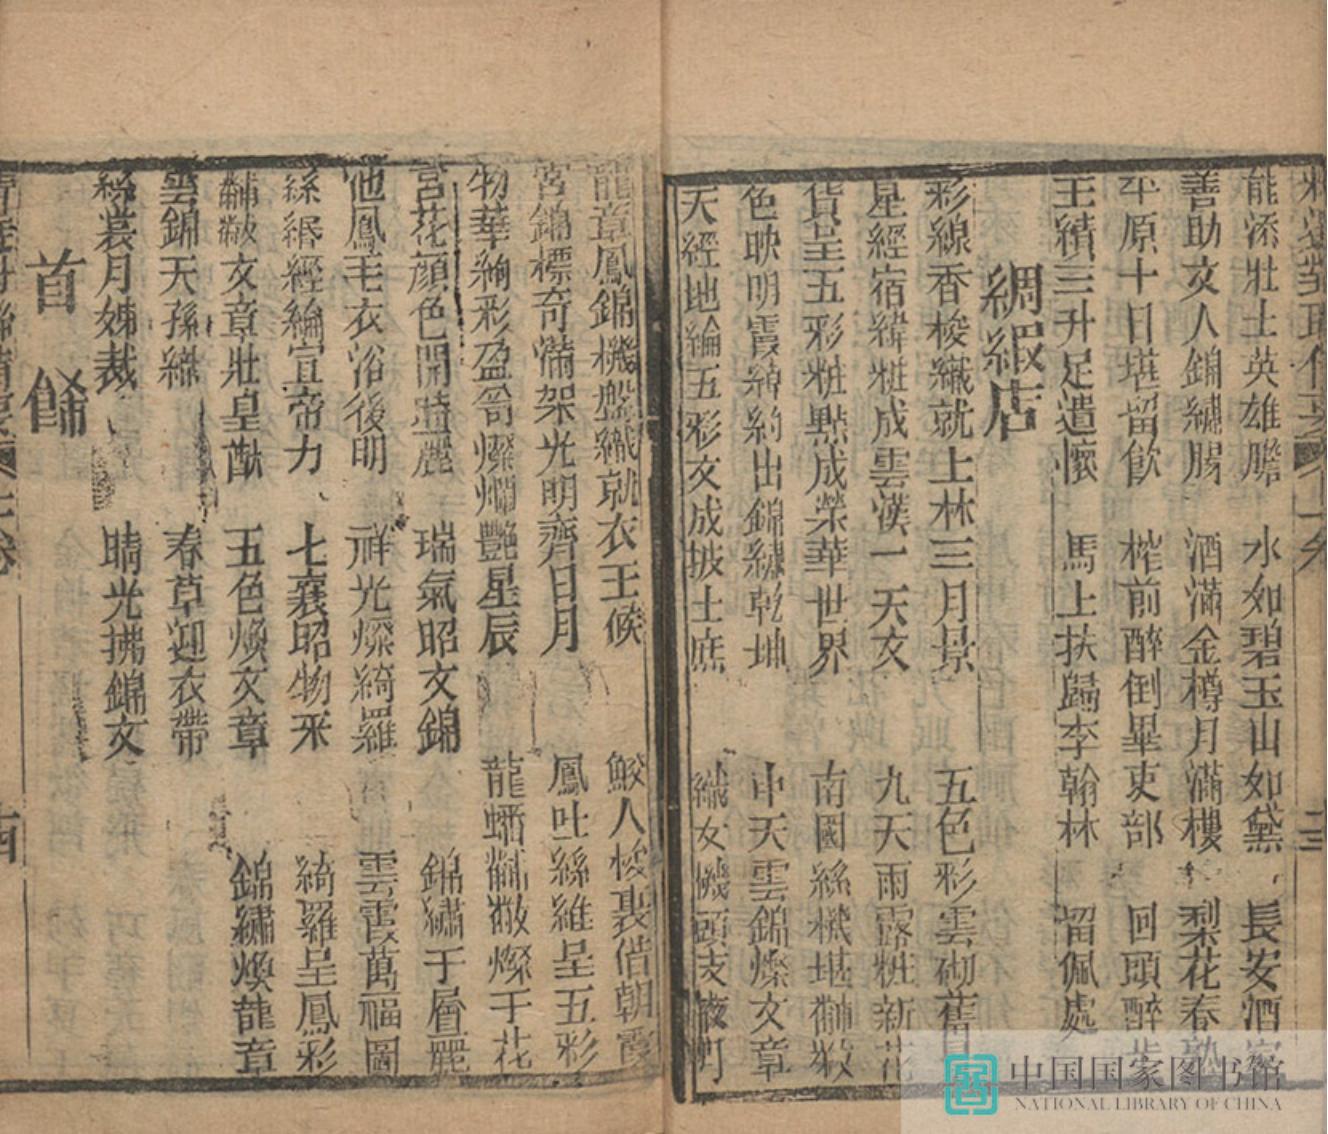 能添壯士英雄膽 水如碧玉山如黛 長安酒
善助文人錦繡腸 酒滿金樽月滿樓 梨花春熟
平原十日堪留飲 榨前醉倒畢吏部 回頭醉
王績三升足遣懷 馬上扶歸李翰林 留佩處
綢緞店
彩線香梭織就上林三月景 五色彩雲砌舊
星經宿緯粧成雲漢一天文 九天雨露粧新花
貨呈五彩粧點成榮華世界 南國絲機堪黼黻
色映明霞綽約出錦繡乾坤 中天雲錦燦文章
天經地綸五彩文成披士庶 織女機頭支
龍章鳳錦機盤織就衣王候 鮫人梭裏借朝霞
宮錦標奇滿架光明齊日月 鳳吐絲維呈五彩
物華絢彩盈笥燦爛艷星辰 龍蟠黼黻燦千花
宮花顏色開時麗 瑞氣昭文錦 錦繡千層麗
池鳳毛衣浴後明 祥光燦綺羅 雲霞萬福圖
絲緡經綸宣帝力 七襄昭物采 綺羅呈鳳彩
黼黻文章壯皇猷 五色煥文章 錦繡煥龍章
雲錦天孫織 春草迎衣帶
絲裳月姊裁 晴光拂錦文
首餙
中国国家图书馆
NATIONAL LIBRARY OF CHINA